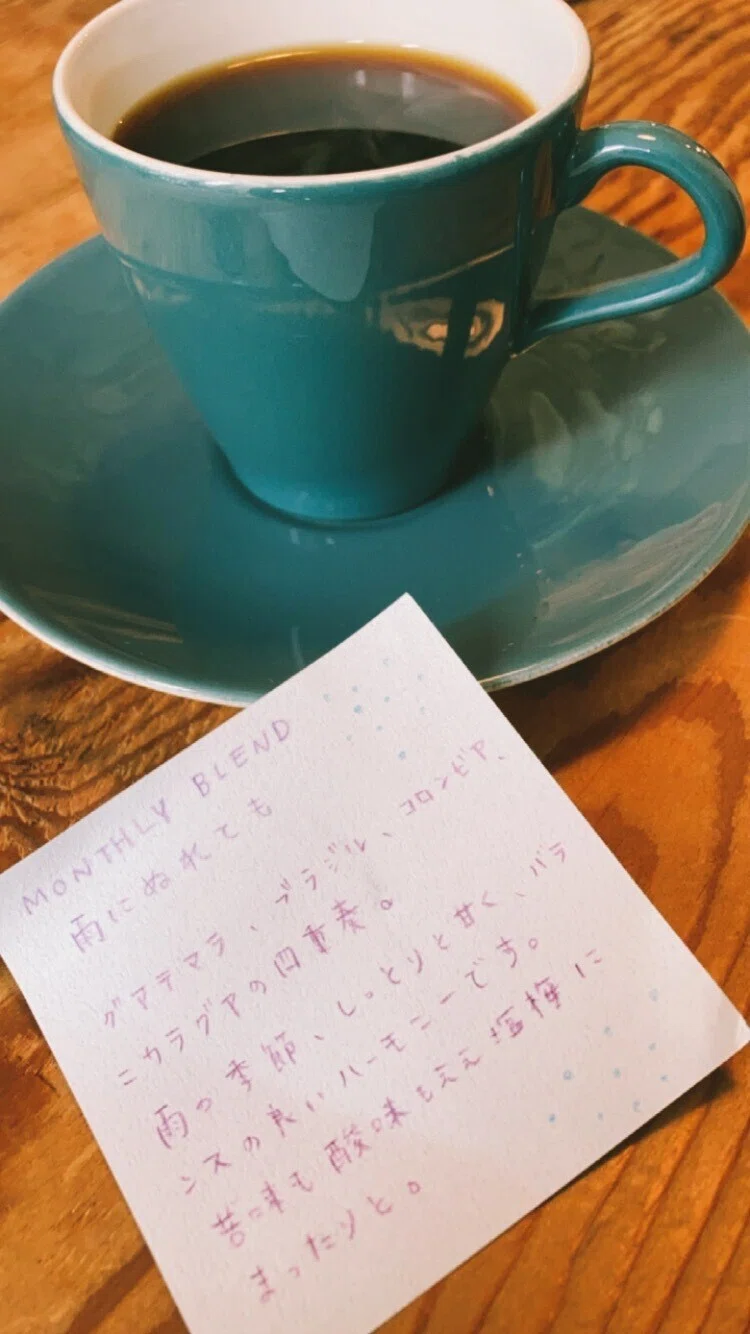 MONTHLY BLEND
雨にぬれても
グアテマラ、ブラジル、コロンビア、
ニカラグアの四重奏。
雨の季節、しっとりと甘く、バラ
ンスの良いハーモニーです。
苦味も酸味もええ塩梅に
まったりと。